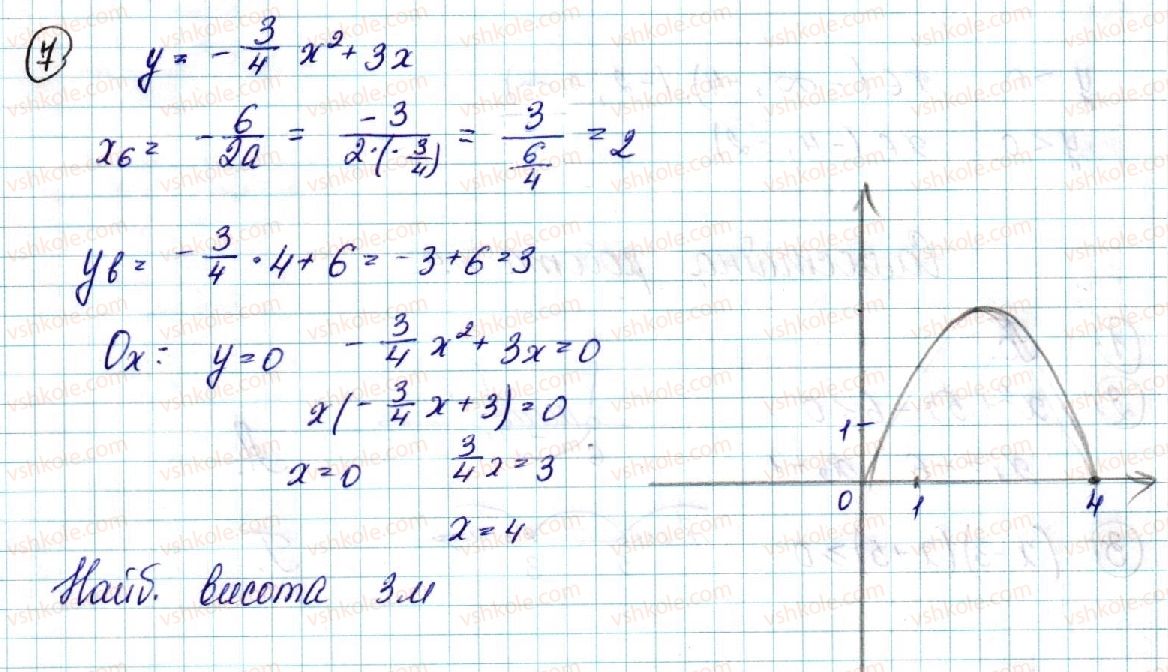 7 y = - 3/4 x² + 3x
xв = - б/2a = -3/(2·(-3/4)) = 3/(6/4) = 2
yв = - 3/4 · 4 + 6 = -3 + 6 = 3
Ox: y = 0 - 3/4 x² + 3x = 0
x(- 3/4 x + 3) = 0
x = 0 3/4 x = 3
x = 4
Найб. висота 3м
1
0 1 4
vshkole.com